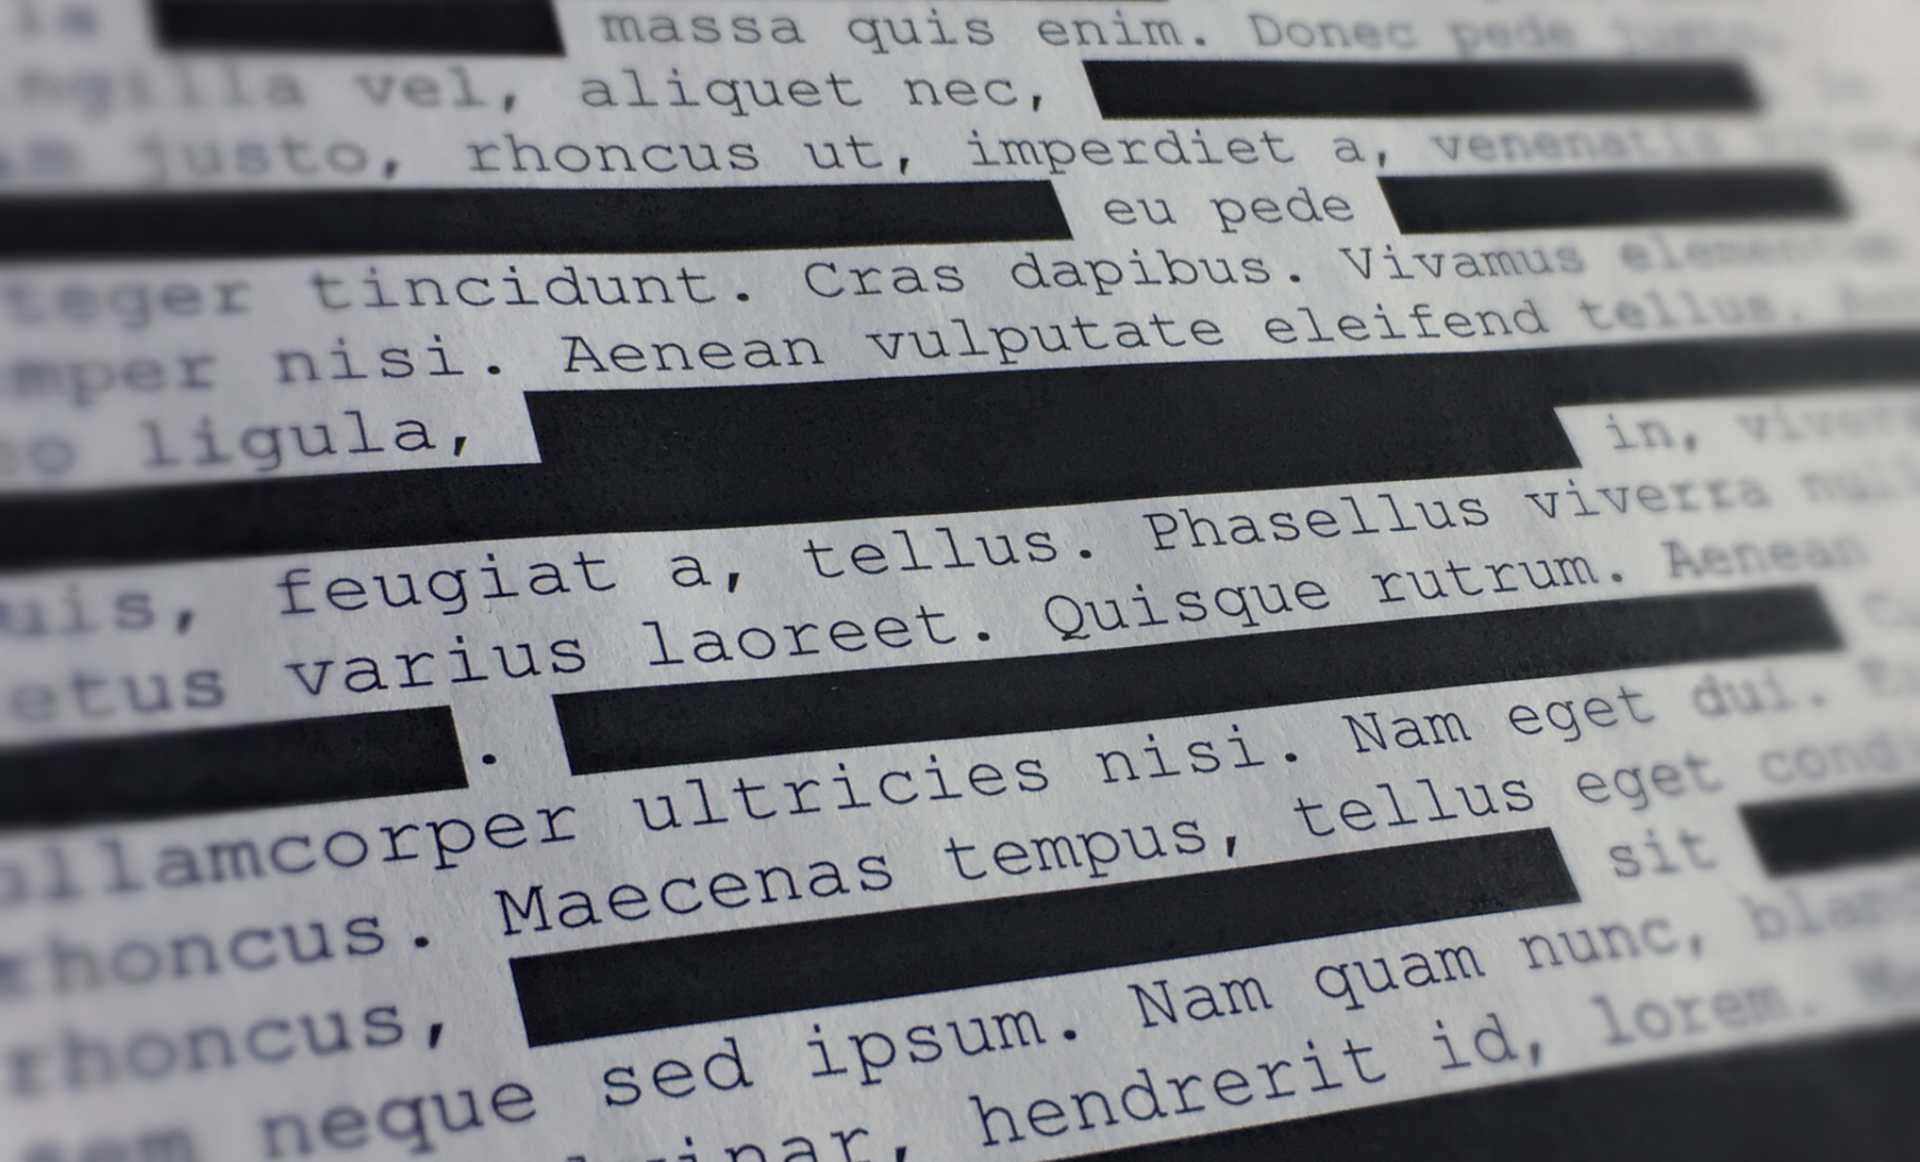 massa quis enim. Donec pede justo,
vel, aliquet nec,
justo, rhoncus ut, imperdiet a, venenatis
eu pede
teger tincidunt. Cras dapibus. Vivamus elementum
mper nisi. Aenean vulputate eleifend tellus.
ligula,
in, viverra
uis, feugiat a, tellus. Phasellus viverra
etus varius laoreet. Quisque rutrum. Aenean
.
ullamcorper ultricies nisi. Nam eget dui.
rhoncus. Maecenas tempus, tellus eget cond
rhoncus, sit
sem neque sed ipsum. Nam quam nunc, bland
hendrerit id, lorem.